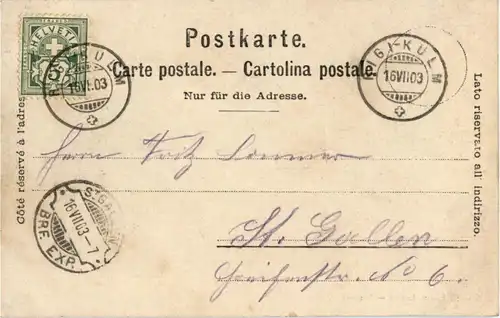 HELVETIA
5
RIGI-KULM
16VII.03
Postkarte.
Carte postale. — Cartolina postale.
Nur für die Adresse.
RIGI-KULM
16VII03
Côté réservé à l'adresse
Lato riservato all' indirizzo.
Herrn Fritz
ST. GALLEN
16VII03–7
BRF. EXP.
St. Gallen
No 6.